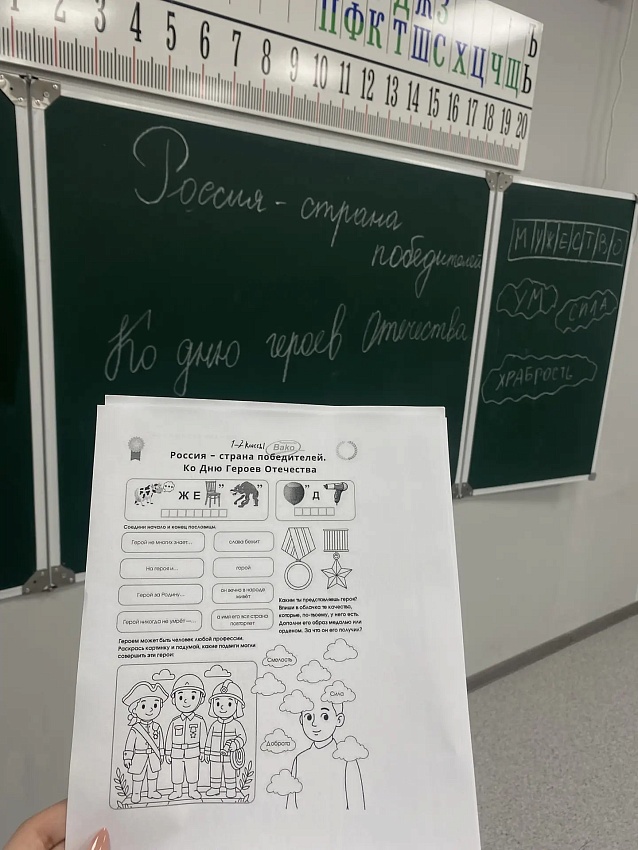 Д Ж З
П Ф К Т Ш С Х Ц Ч Щ Ь Ъ
1 2 3 4 5 6 7 8 9 10 11 12 13 14 15 16 17 18 19 20
Россия - страна
победителей
Ко дню героев Отечества
МУЖЕСТВО
УМ
СИЛА
ХРАБРОСТЬ
1-2 классы Bako
Россия – страна победителей.
Ко Дню Героев Отечества
Ж Е ” ”
” Д
Соедини начало и конец пословицы.
Герой не многих знает...
слава бежит
На героя и...
герой
Герой за Родину...
он вечно в народе
живёт
Герой никогда не умрёт —...
а имя его вся страна
повторяет
Каким ты представляешь героя?
Впиши в облачка те качества,
которые, по-твоему, у него есть.
Дополни его образ медалью или
орденом. За что он его получил?
Героем может быть человек любой профессии.
Раскрась картинку и подумай, какие подвиги могли
совершить эти герои:
Смелость
Сила
Доброта